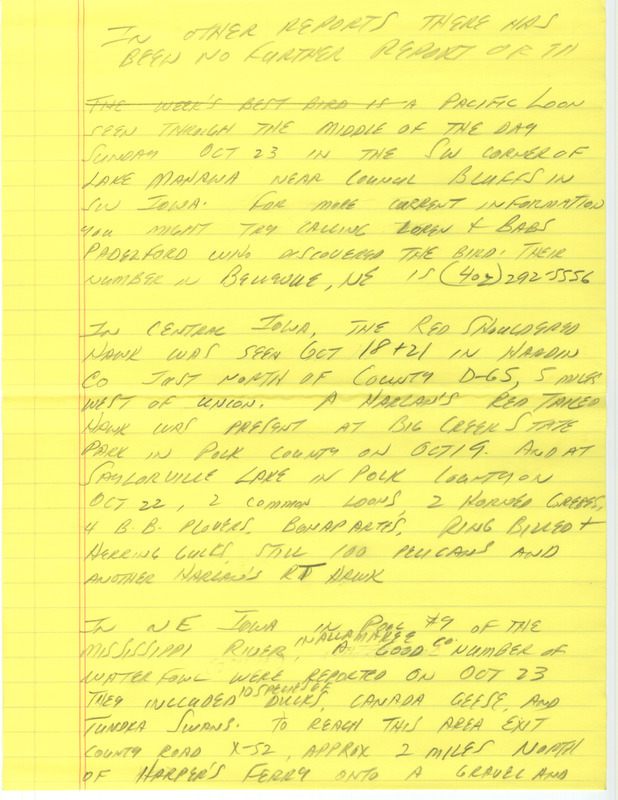 IN OTHER REPORTS THERE HAS
BEEN NO FURTHER REPORT OF TH
THE WEEK'S BEST BIRD IS A PACIFIC LOON
SEEN THROUGH THE MIDDLE OF THE DAY
SUNDAY OCT 23 IN THE SW CORNER OF
LAKE MANAWA NEAR COUNCIL BLUFFS IN
SW IOWA. FOR MORE CURRENT INFORMATION
YOU MIGHT TRY CALLING LOREN + BABS
PADELFORD WHO DISCOVERED THE BIRD. THEIR
NUMBER IN BELLEVUE, NE IS (402) 292-5556
IN CENTRAL IOWA, THE RED SHOULDERED
HAWK WAS SEEN OCT 18+21 IN HARDIN
CO JUST NORTH OF COUNTY D-65, 5 MILES
WEST OF UNION. A HARLAN'S RED TAILED
HAWK WAS PRESENT AT BIG CREEK STATE
PARK IN POLK COUNTY ON OCT 19. AND AT
SAYLORVILLE LAKE IN POLK COUNTY ON
OCT 22, 2 COMMON LOONS, 2 HORNED GREBES,
4 B.B. PLOVERS, BONAPARTES, RING BILLED +
HERRING GULLS, STILL 100 PELICANS AND
ANOTHER HARLAN'S RT HAWK
IN NE IOWA IN POOL #9 OF THE
MISSISSIPPI RIVER, IN ALLAMAKEE CO. A GOOD NUMBER OF
WATERFOWL WERE REPORTED ON OCT 23
THEY INCLUDED 10 SPECIES OF DUCKS, CANADA GEESE, AND
TUNDRA SWANS. TO REACH THIS AREA EXIT
COUNTY ROAD X-52, APPROX 2 MILES NORTH
OF HARPER'S FERRY ONTO A GRAVEL AND